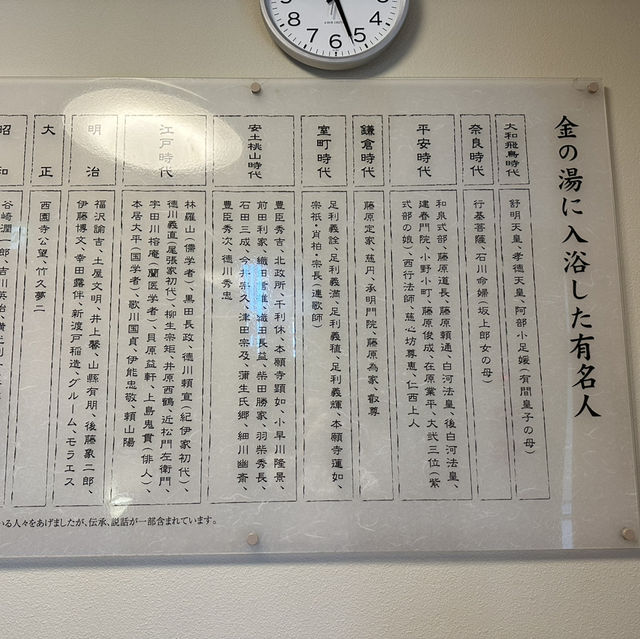 8 7 6 5 4
金の湯に入浴した有名人
大和飛鳥時代
舒明天皇、孝德天皇、阿部小足媛(有間皇子の母)
奈良時代
行基菩薩、石川命婦(坂上郎女の母)
平安時代
和泉式部、藤原道長、藤原頼通、白河法皇、後白河法皇、
建春門院、小野小町、藤原俊成、在原業平、大弐三位(紫
式部の娘)、西行法師、慈心坊尊恵、仁西上人
鎌倉時代
藤原定家、慈円、承明門院、藤原為家、叡尊
室町時代
足利義詮、足利義満、足利義稙、足利義輝、本願寺蓮如、
宗祇・肖柏・宗長(連歌師)
安土桃山時代
豊臣秀吉、北政所、千利休、本願寺顕如、小早川隆景、
前田利家、織田信雄、織田長益、柴田勝家、羽柴秀長、
石田三成、今井宗久、津田宗及、蒲生氏郷、細川幽斎、
豊臣秀次、徳川秀忠
江戸時代
林羅山(儒学者)、黒田長政、徳川頼宣(紀伊家初代)、
徳川義直(尾張家初代)、柳生宗矩、井原西鶴、近松門左衛門、
宇田川榕庵(蘭医学者)、貝原益軒、上島鬼貫(俳人)、
本居大平(国学者)、歌川国貞、伊能忠敬、頼山陽
明治
福沢諭吉、土屋文明、井上馨、山縣有朋、後藤象二郎、
伊藤博文、幸田露伴、新渡戸稲造、グルーム、モラエス
大正
西園寺公望、竹久夢二
昭和
谷崎潤一郎、吉川英治、
いる人々をあげましたが、伝承、説話が一部含まれています。